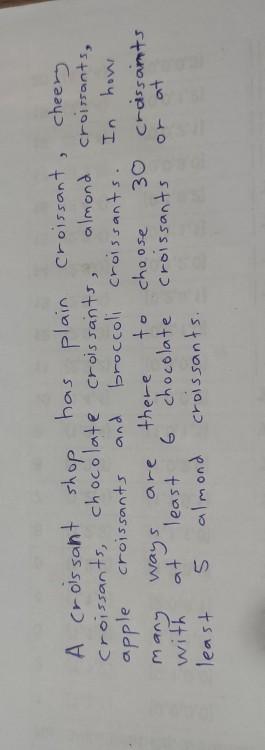 A croissant shop has plain croissant, cheery
croissants, chocolate croissants, almond croissants,
apple croissants and broccoli croissants. In how
many ways are there to choose 30 croissants
with at least 6 chocolate croissants or at
least 5 almond croissants.